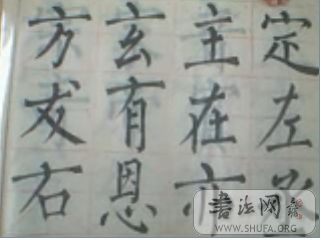 方玄主定
友有在左
右恩亦
书法网
WWW.SHUFA.ORG